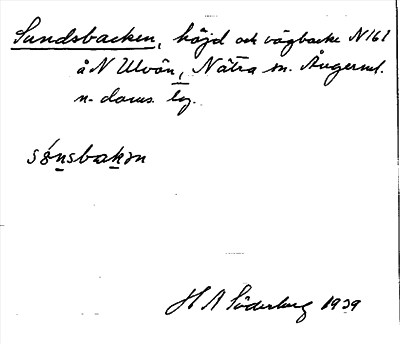 Sundsbacken, höjd och vägbacke N 161
å N Ulvön, Nätra sn. Ångerml.
n-daws. by.
sónsbakən
H A Söderberg 1939